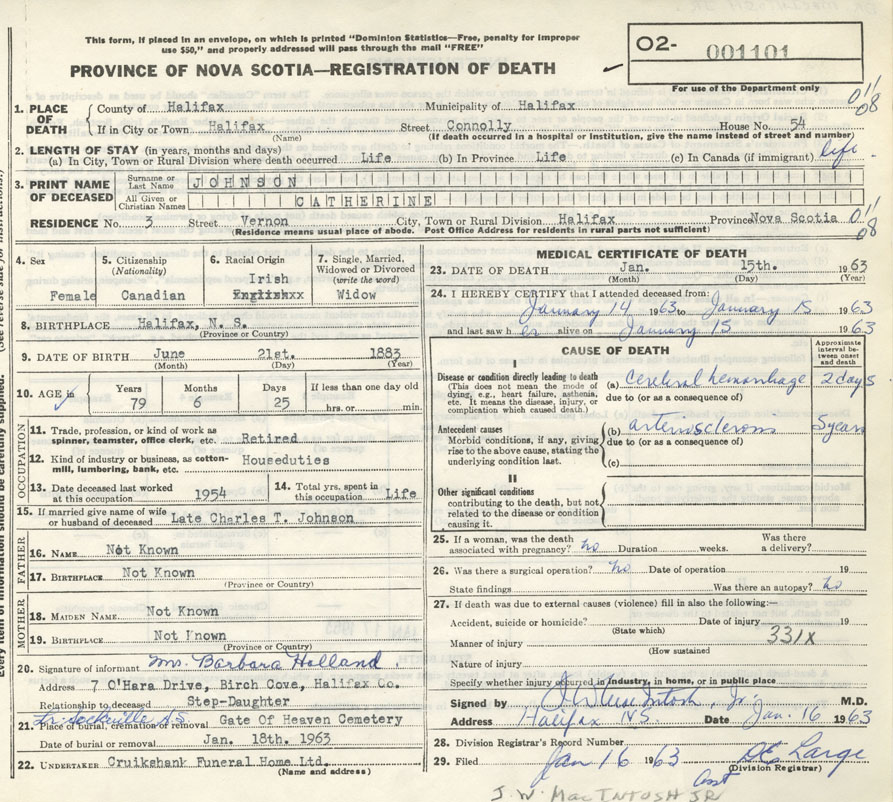 This form, if placed in an envelope, on which is printed "Dominion Statistics—Free, penalty for improper
use $50," and properly addressed will pass through the mail "FREE"
PROVINCE OF NOVA SCOTIA—REGISTRATION OF DEATH
O2- 001101
For use of the Department only
1. PLACE OF DEATH
County of Halifax Municipality of Halifax
If in City or Town Halifax Street Connolly House No. 54
(Name) (If death occurred in a hospital or institution, give the name instead of street and number)
011
08
2. LENGTH OF STAY (in years, months and days)
(a) In City, Town or Rural Division where death occurred Life (b) In Province Life (c) In Canada (if immigrant) life
3. PRINT NAME OF DECEASED
Surname or Last Name JOHNSON
All Given or Christian Names CATHERINE
RESIDENCE No. 3 Street Vernon City, Town or Rural Division Halifax Province Nova Scotia
(Residence means usual place of abode. Post Office Address for residents in rural parts not sufficient)
011
08
4. Sex
Female
5. Citizenship
(Nationality)
Canadian
6. Racial Origin
Irish
Englishxx
7. Single, Married, Widowed or Divorced
(write the word)
Widow
8. BIRTHPLACE Halifax, N. S.
(Province or Country)
9. DATE OF BIRTH June 21st. 1883
(Month) (Day) (Year)
10. AGE in
Years Months Days If less than one day old
79 6 25 hrs. or min.
OCCUPATION
11. Trade, profession, or kind of work as
spinner, teamster, office clerk, etc. Retired
12. Kind of industry or business, as cotton-
mill, lumbering, bank, etc. Houseduties
13. Date deceased last worked
at this occupation 1954
14. Total yrs. spent in
this occupation Life
15. If married give name of wife
or husband of deceased Late Charles T. Johnson
FATHER
16. NAME Not Known
17. BIRTHPLACE Not Known
(Province or Country)
MOTHER
18. MAIDEN NAME Not Known
19. BIRTHPLACE Not Known
(Province or Country)
20. Signature of informant Mrs. Barbara Holland.
Address 7 O'Hara Drive, Birch Cove, Halifax Co.
Relationship to deceased Step-Daughter
Sackville N.S.
21. Place of burial, cremation or removal Gate Of Heaven Cemetery
Date of burial or removal Jan. 18th. 1963
22. UNDERTAKER Cruikshank Funeral Home Ltd.
(Name and address)
MEDICAL CERTIFICATE OF DEATH
23. DATE OF DEATH Jan. 15th. 1963
(Month) (Day) (Year)
24. I HEREBY CERTIFY that I attended deceased from:
January 14 1963 to January 15 1963
and last saw h er alive on January 15 1963
CAUSE OF DEATH
Approximate interval between onset and death
I
Disease or condition directly leading to death
(This does not mean the mode of
dying, e.g., heart failure, asthenia,
etc. It means the disease, injury, or
complication which caused death.)
(a) Cerebral hemorrhage 2 days
due to (or as a consequence of)
Antecedent causes
Morbid conditions, if any, giving
rise to the above cause, stating the
underlying condition last.
(b) arteriosclerosis 5 years
due to (or as a consequence of)
(c)
II
Other significant conditions
contributing to the death, but not
related to the disease or condition
causing it.
25. If a woman, was the death
associated with pregnancy? no Duration weeks. Was there
a delivery?
26. Was there a surgical operation? no Date of operation 19
State findings Was there an autopsy? no
27. If death was due to external causes (violence) fill in also the following:—
Accident, suicide or homicide? Date of injury 19
(State which)
331X
Manner of injury
(How sustained
Nature of injury
Specify whether injury occurred in industry, in home, or in public place
Signed by J W MacIntosh, Jr. M.D.
Address Halifax NS. Date Jan. 16 1963
28. Division Registrar's Record Number
29. Filed Jan 16 1963 DE Large
(Division Registrar)
asst
J. W. MACINTOSH JR